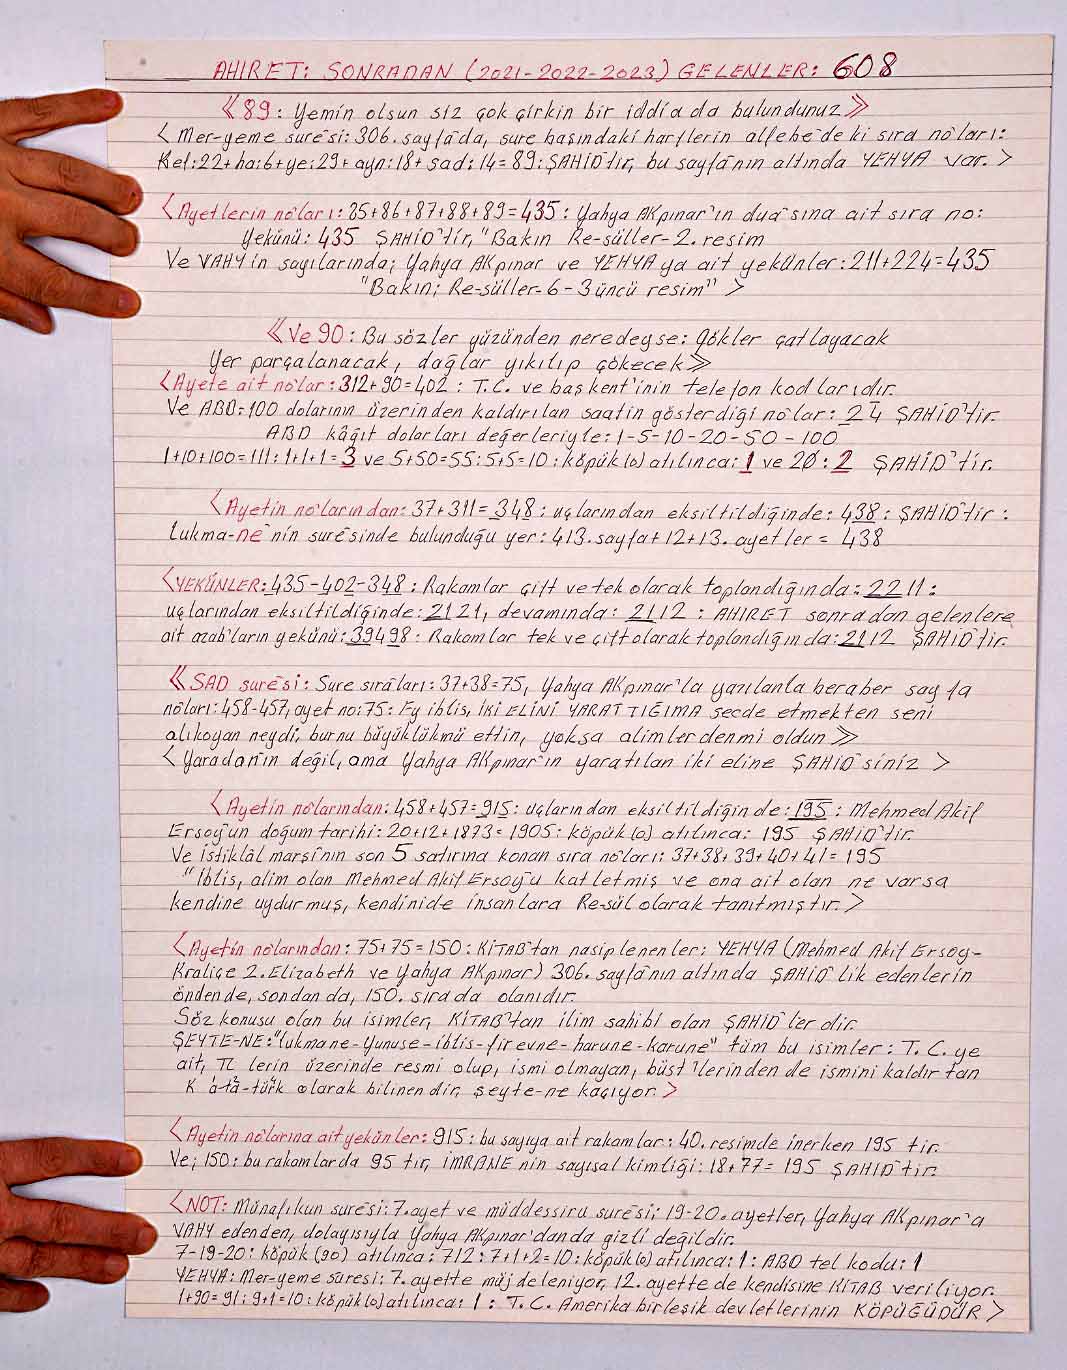 AHIRET: SONRADAN (2021-2022-2023) GELENLER: 608
《89: Yemin olsun siz çok çirkin bir iddia da bulundunuz》
〈Mer-yeme suresi: 306. sayfada, sure başındaki harflerin alfebe'de ki sıra no'ları:
Kef:22+ha:6+ye:29+ayn:18+sad:14=89: ŞAHİD'tir, bu sayfa'nın altında YEHYA var.〉
〈Ayetlerin no'ları: 85+86+87+88+89=435: Yahya AKpınar'ın dua'sına ait sıra no:
Yekünü: 435 ŞAHİD'tir, "Bakın Re-süller-2. resim
Ve VAHY'in sayılarında; Yahya AKpınar ve YEHYA ya ait yekünler: 211+224=435
"Bakın; Re-süller-6-3üncü resim" 〉
《Ve 90: Bu sözler yüzünden neredeyse: gökler çatlayacak
Yer parçalanacak, dağlar yıkılıp çökecek》
〈Ayete ait no'lar: 312+90=402: T.C. ve başkent'inin telefon kodlarıdır.
Ve ABD: 100 dolarının üzerinden kaldırılan saatin gösterdiği no'lar: 24 ŞAHİD'tir.
ABD kâğıt dolarları değerleriyle: 1-5-10-20-50-100
1+10+100=111: 1+1+1=3 ve 5+50=55: 5+5=10: köpük (o) atılınca: 1 ve 20: 2 ŞAHİD'tir.
〈Ayetin no'larından: 37+311=348: uçlarından eksiltildiğinde: 438: ŞAHİD'tir:
Lukma-ne'nin suresinde bulunduğu yer: 413. sayfa+12+13. ayetler = 438
〈YEKÜNLER: 435-402-348: Rakamlar çift ve tek olarak toplandığında: 2211:
uçlarından eksiltildiğinde: 2121, devamında: 2112: AHIRET sonradan gelenlere
ait azab'ların yekünü: 39498: Rakamlar tek ve çift olarak toplandığında: 2112 ŞAHİD'tir.
《SAD suresi: Sure sıraları: 37+38=75, Yahya AKpınar'la yazılanla beraber sayfa
no'ları: 458-457, ayet no: 75: Ey iblis, İKİ ELİNİ YARATTIĞIMA secde etmekten seni
alıkoyan neydi, burnu büyüklükmü ettin, yoksa alimlerdenmi oldun》
〈Yaradan'ın değil, ama Yahya AKpınar'ın yaratılan iki eline ŞAHİD'siniz 〉
〈Ayetin no'larından: 458+457=915: uçlarından eksiltildiğinde: 195: Mehmed Akif
Ersoy'un doğum tarihi: 20+12+1873=1905: köpük (o) atılınca: 195 ŞAHİD'tir.
Ve istiklâl marşı'nın son 5 satırına konan sıra no'ları: 37+38+39+40+41=195
"İblis, alim olan Mehmed Akif Ersoy'u katletmiş ve ona ait olan ne varsa
kendine uydurmuş, kendinide insanlara Re-sül olarak tanıtmıştır.〉
〈Ayetin no'larından: 75+75=150: KİTAB'tan nasiplenenler: YEHYA (Mehmed Akif Ersoy-
Kraliçe 2. Elizabeth ve Yahya AKpınar) 306. sayfa'nın altında ŞAHİD'lik edenlerin
önden de, sondan da, 150. sırada olanıdır.
Söz konusu olan bu isimler, KİTAB'tan ilim sahibi olan ŞAHİD'lerdir.
ŞEYTE-NE: "lukmane-yunuse-iblis-firevne-harune-karune" tüm bu isimler: T.C. ye
ait, TL lerin üzerinde resmi olup, ismi olmayan, büst'lerinden de ismini kaldırtan
K a'ta-türk olarak bilinendir, şeyte-ne kaçıyor.〉
〈Ayetin no'larına ait yekünler: 915: bu sayıya ait rakamlar: 40. resimde inerken 195 tir.
Ve; 150: bu rakamlarda 95 tir, İMRANE'nin sayısal kimliği: 18+77=195 ŞAHİD'tir.
〈NOT: Münafıkun suresi: 7. ayet ve müddessiru suresi; 19-20. ayetler, Yahya AKpınar'a
VAHY edenden, dolayısıyla Yahya AKpınar'danda gizli değildir.
7-19-20: köpük (90) atılınca: 712: 7+1+2=10: köpük (o) atılınca: 1: ABD tel kodu: 1
YEHYA: Mer-yeme suresi: 7. ayette müjdeleniyor, 12. ayette de kendisine KİTAB veriliyor.
1+90=91: 9+1=10: köpük (o) atılınca: 1: T.C. Amerika birleşik devletlerinin KÖPÜĞÜDÜR〉